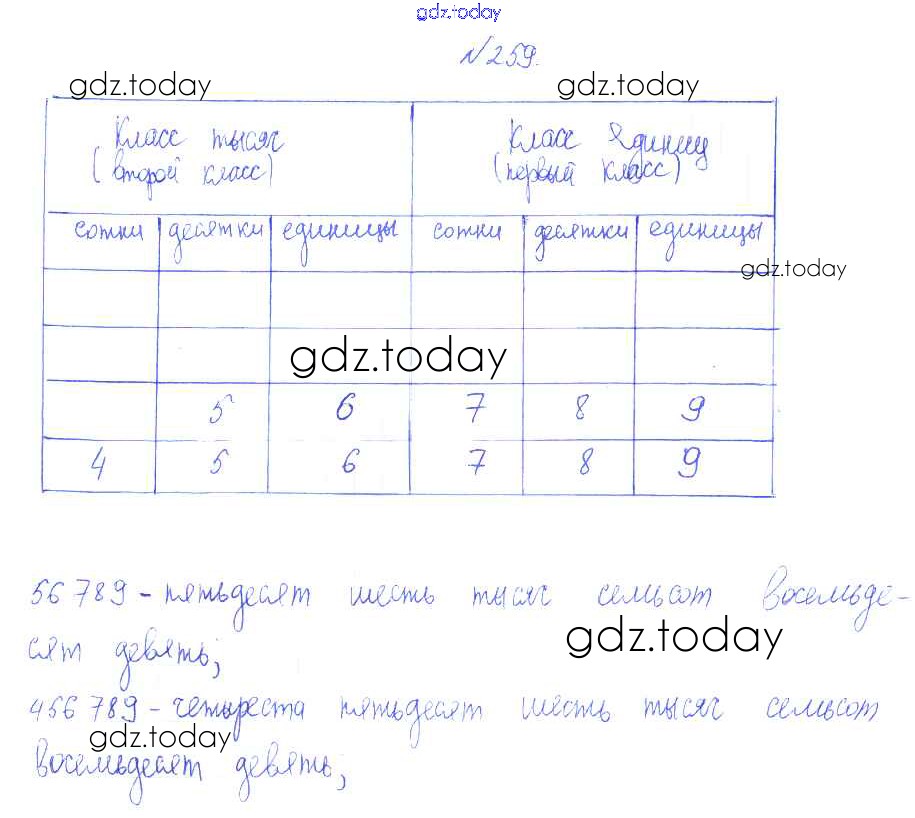 gdz.today
№259.
gdz.today gdz.today
Класс тысяч Класс единиц
(второй класс) (первый класс)
сотни десятки единицы сотни десятки единицы
gdz.today
gdz.today
5 6 7 8 9
4 5 6 7 8 9
56 789 - пятьдесят шесть тысяч семьсот восемьде-
сят девять;
gdz.today
456 789 - четыреста пятьдесят шесть тысяч семьсот
gdz.today
восемьдесят девять;